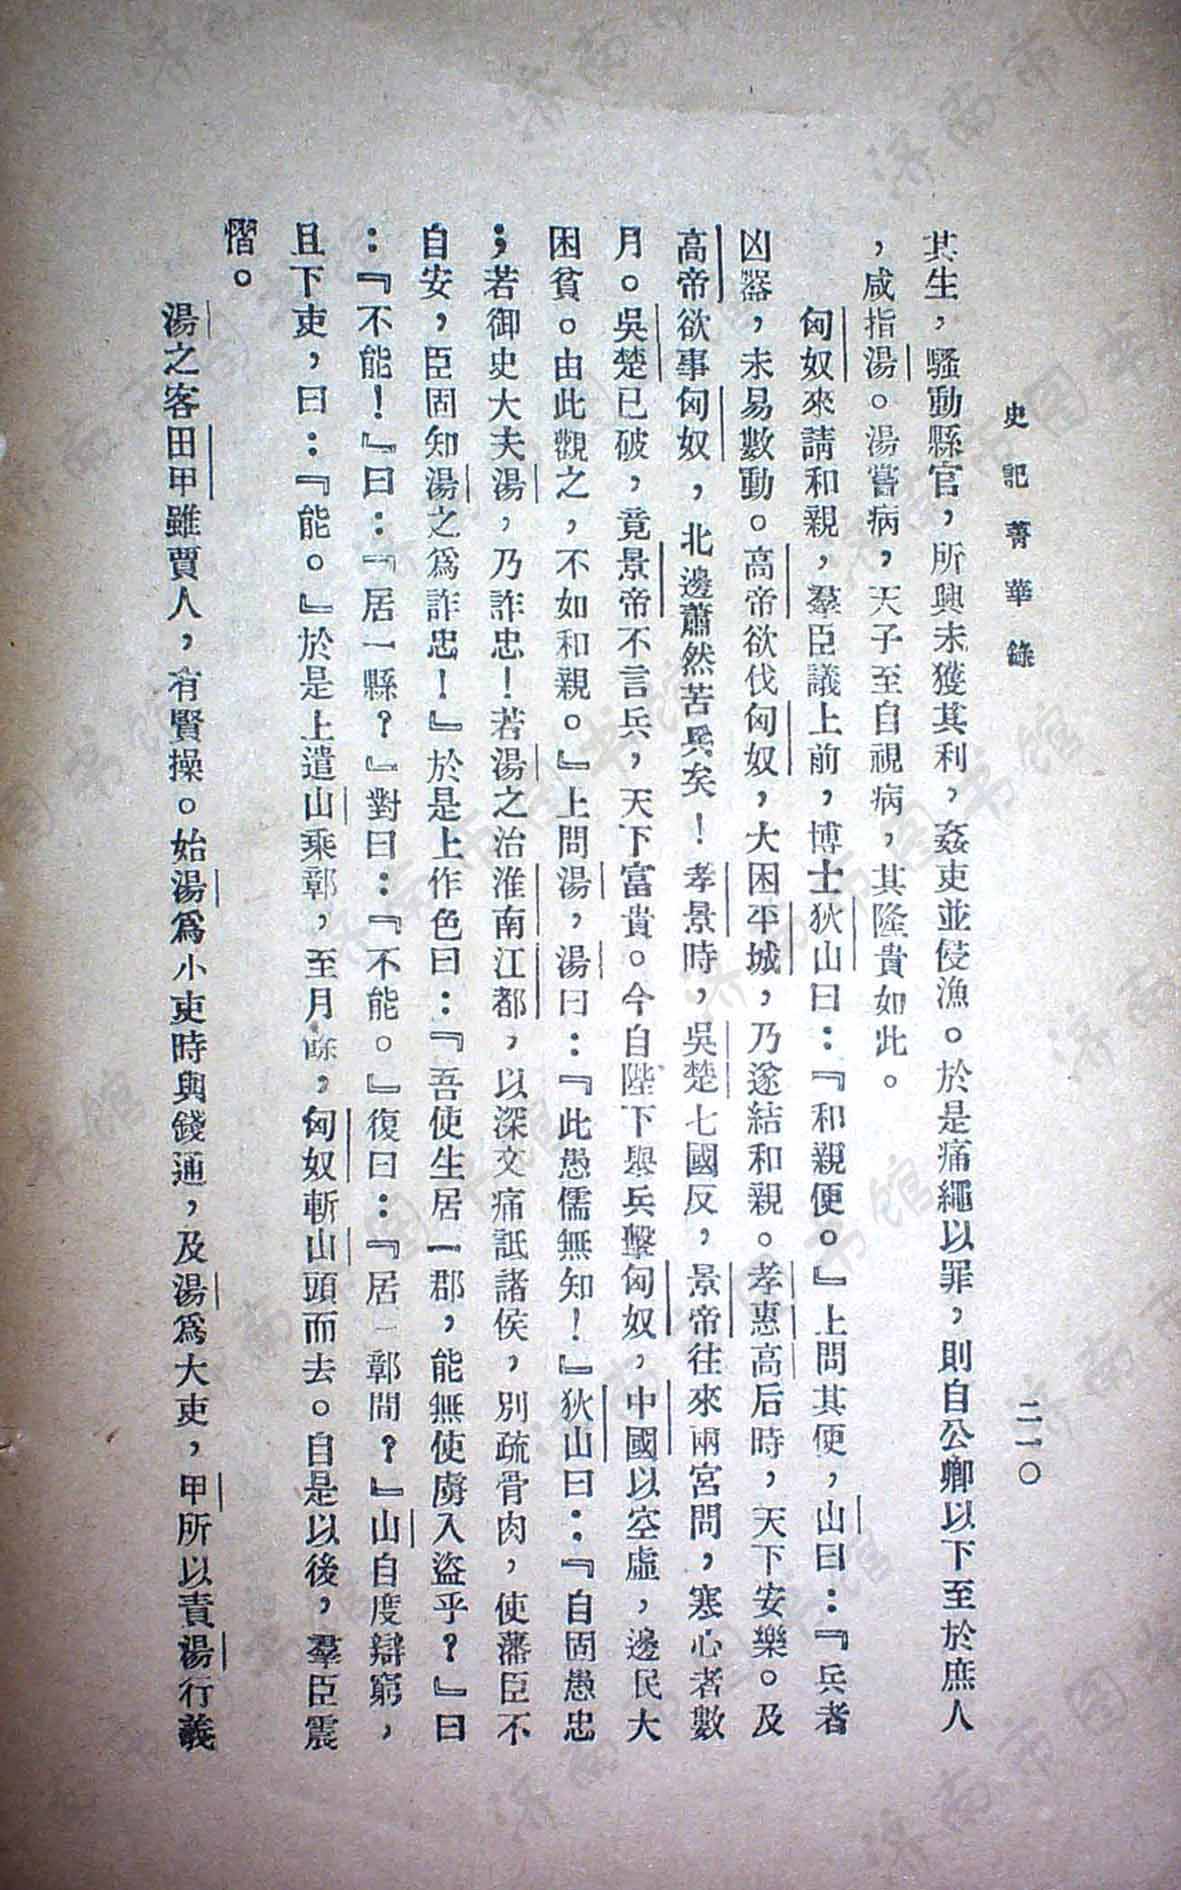 史記菁華錄
二一〇
其生，騷動縣官，所興未獲其利，姦吏並侵漁。於是痛繩以罪，則自公卿以下至於庶人
，咸指湯。湯嘗病，天子至自視病，其隆貴如此。
匈奴來請和親，羣臣議上前，博士狄山曰：『和親便。』上問其便，山曰：『兵者
凶器，未易數動。高帝欲伐匈奴，大困平城，乃遂結和親。孝惠高后時，天下安樂。及
高帝欲事匈奴，北邊蕭然苦兵矣！孝景時，吳楚七國反，景帝往來兩宮間，寒心者數
月。吳楚已破，竟景帝不言兵，天下富貴。今自陛下舉兵擊匈奴，中國以空虛，邊民大
困貧。由此觀之，不如和親。』上問湯，湯曰：『此愚儒無知！』狄山曰：『自固愚忠
；若御史大夫湯，乃詐忠！若湯之治淮南江都，以深文痛詆諸侯，別疏骨肉，使藩臣不
自安，臣固知湯之爲詐忠！』於是上作色曰：『吾使生居一郡，能無使虜入盜乎？』曰
：『不能！』曰：『居一縣？』對曰：『不能。』復曰：『居一鄣間？』山自度辯窮，
且下吏，曰：『能。』於是上遣山乘鄣，至月餘，匈奴斬山頭而去。自是以後，羣臣震
慴。
湯之客田甲雖賈人，有賢操。始湯爲小吏時與錢通，及湯爲大吏，甲所以責湯行義